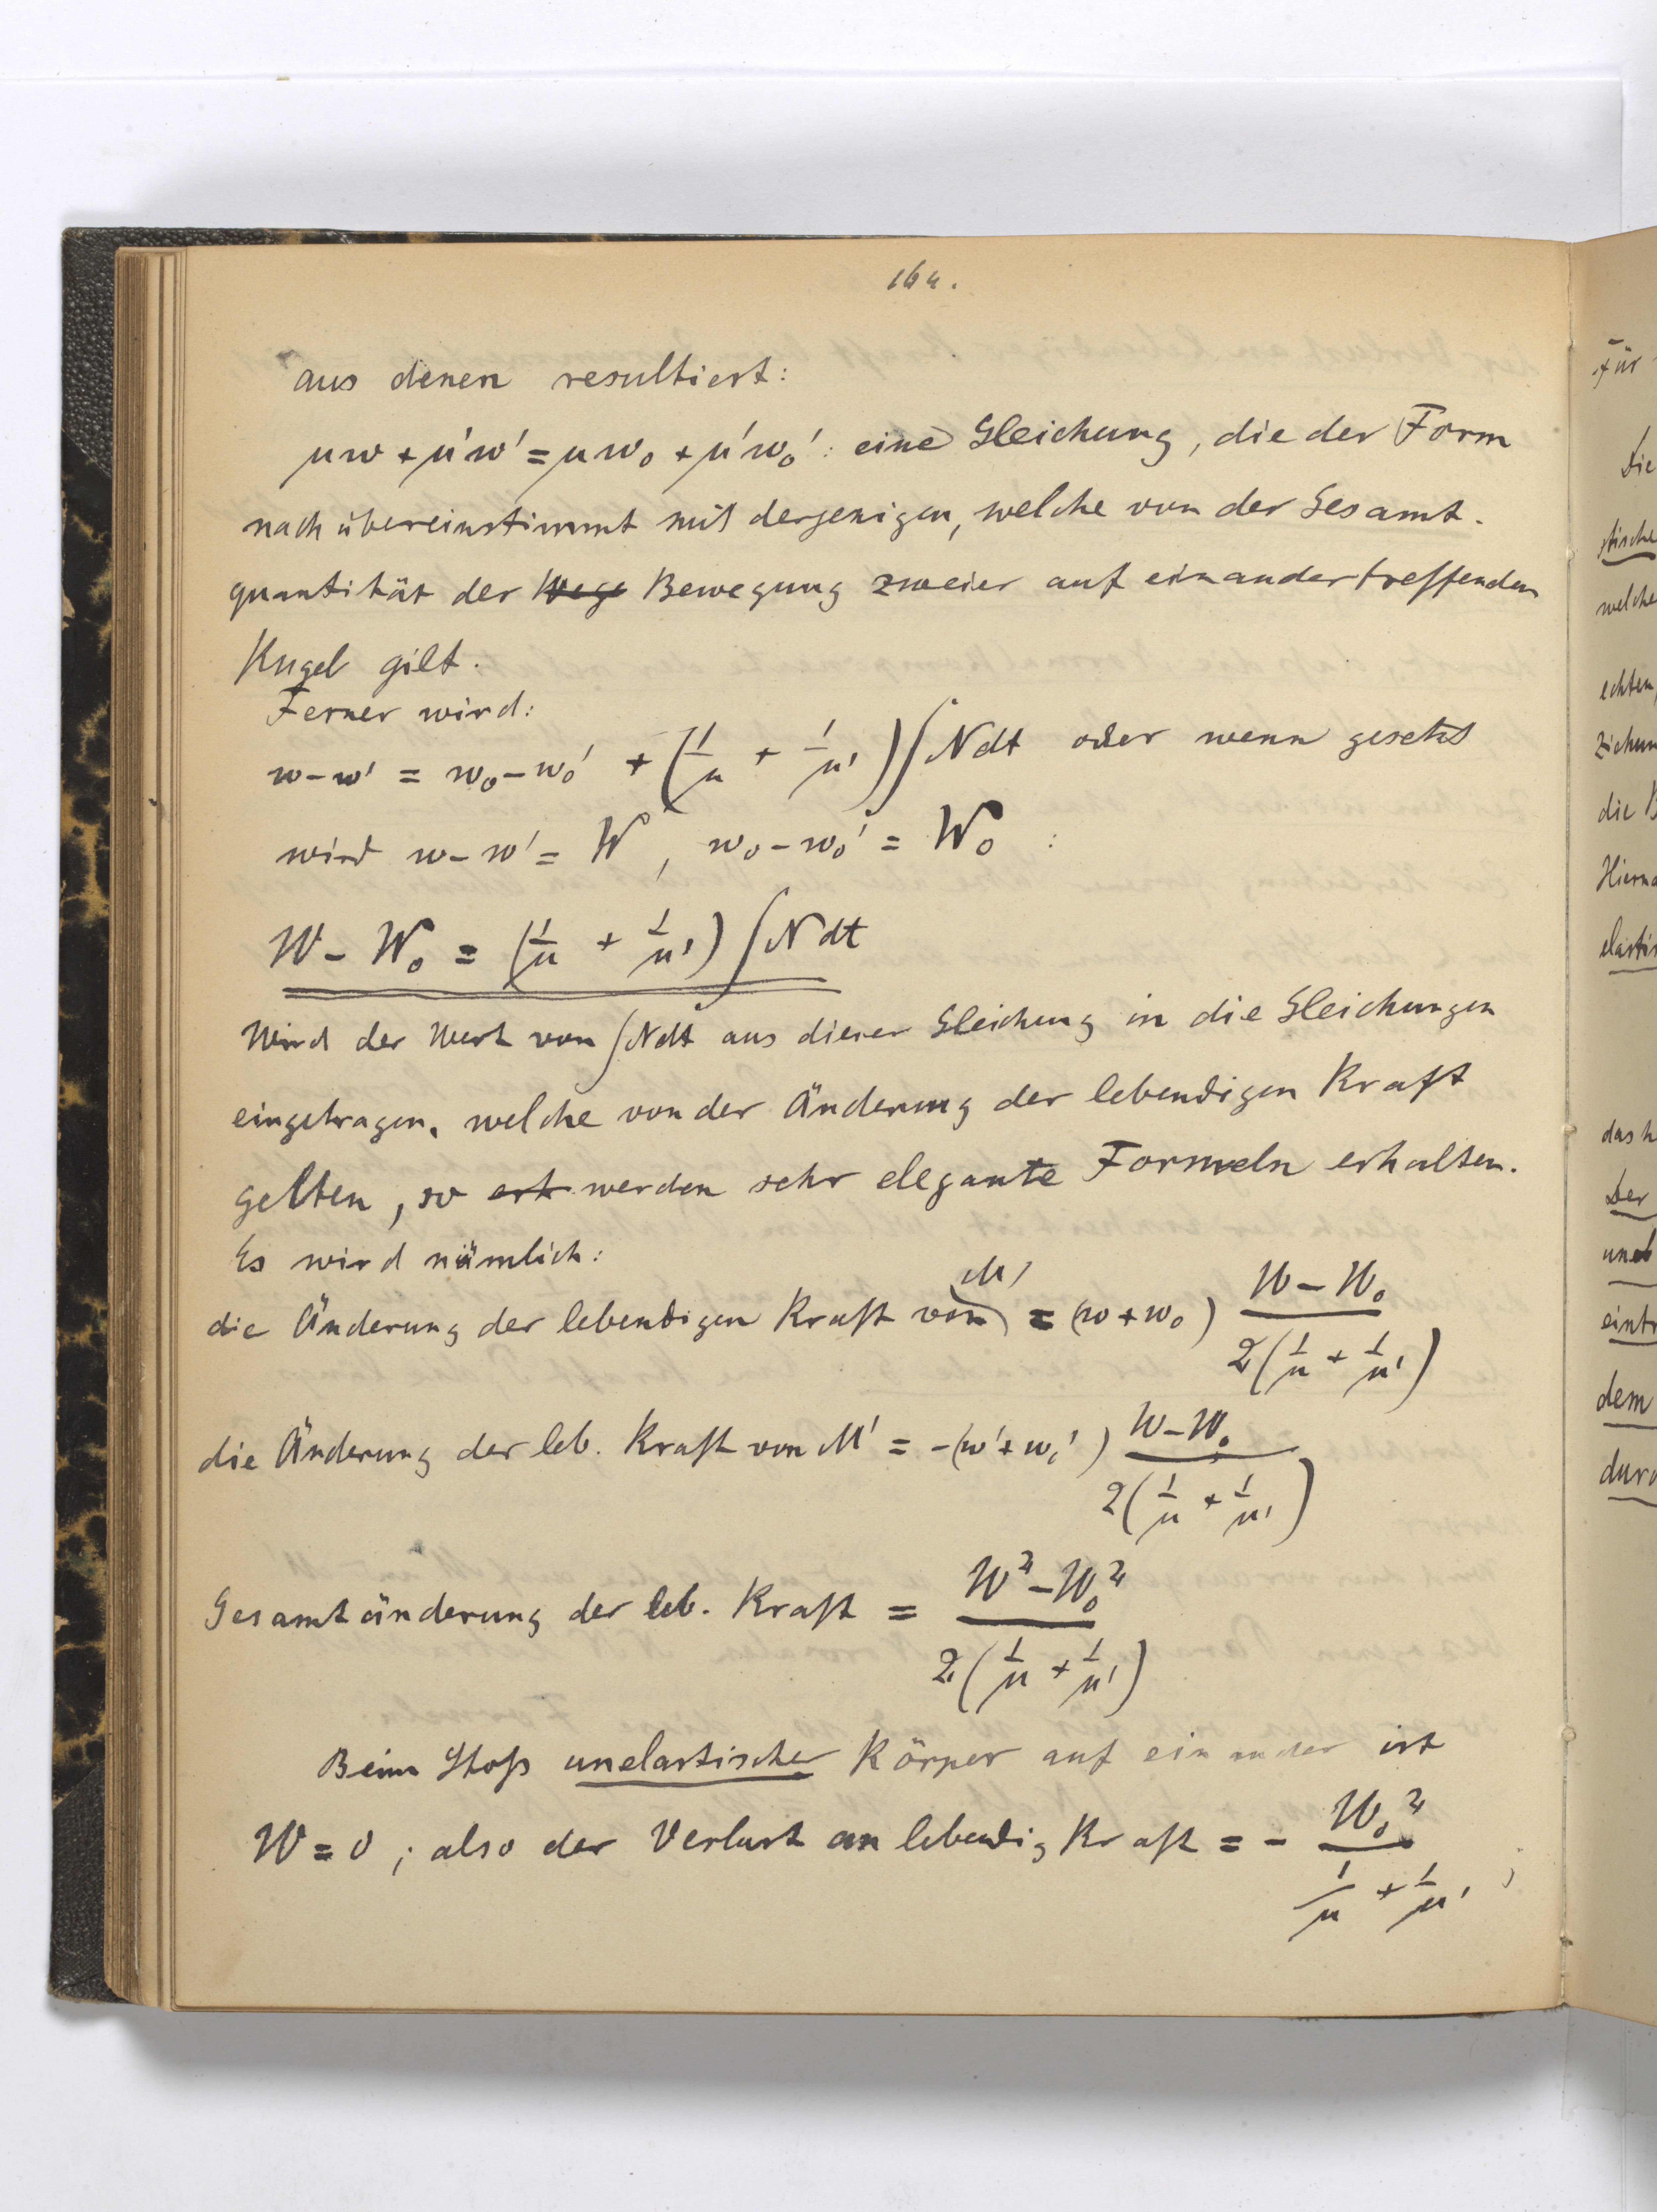 164.
aus denen resultiert:
μw + μ'w' = μw₀ + μ'w₀': eine Gleichung, die der Form
nach übereinstimmt mit derjenigen, welche von der Gesamt-
quantität der Wege Bewegung zweier auf einander treffenden
Kugel gilt.
Ferner wird:
w - w' = w₀ - w₀' + (1/μ + 1/μ') ∫ N dt oder wenn gesetzt
wird w - w' = W, w₀ - w₀' = W₀ :
W - W₀ = (1/μ + 1/μ') ∫ N dt
Wird der Wert von ∫ N dt aus dieser Gleichung in die Gleichungen
eingetragen, welche von der Änderung der lebendigen Kraft
gelten, so erh werden sehr elegante Formeln erhalten.
Es wird nämlich:
die Änderung der lebendigen Kraft von M = (w + w₀) (W - W₀)/(2(1/μ + 1/μ'))
die Änderung der leb. Kraft von M' = -(w' + w₀') (W - W₀)/(2(1/μ + 1/μ'))
Gesamtänderung der leb. Kraft = (W² - W₀²)/(2(1/μ + 1/μ'))
Beim Stoß unelastischer Körper auf einander ist
W = 0; also der Verlust an lebendig Kraft = - W₀²/(1/μ + 1/μ') ;
Für
Die
stische
welche
echten,
ziehun
die B
Hierna
elastis
das h
Der
und
eintr
dem
durc